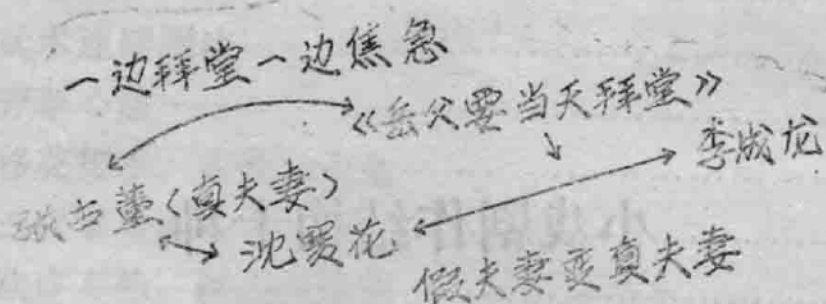 一边拜堂一边焦急
《岳父要当天拜堂》
李成龙
张古董〈真夫妻〉
沈赛花
假夫妻变真夫妻